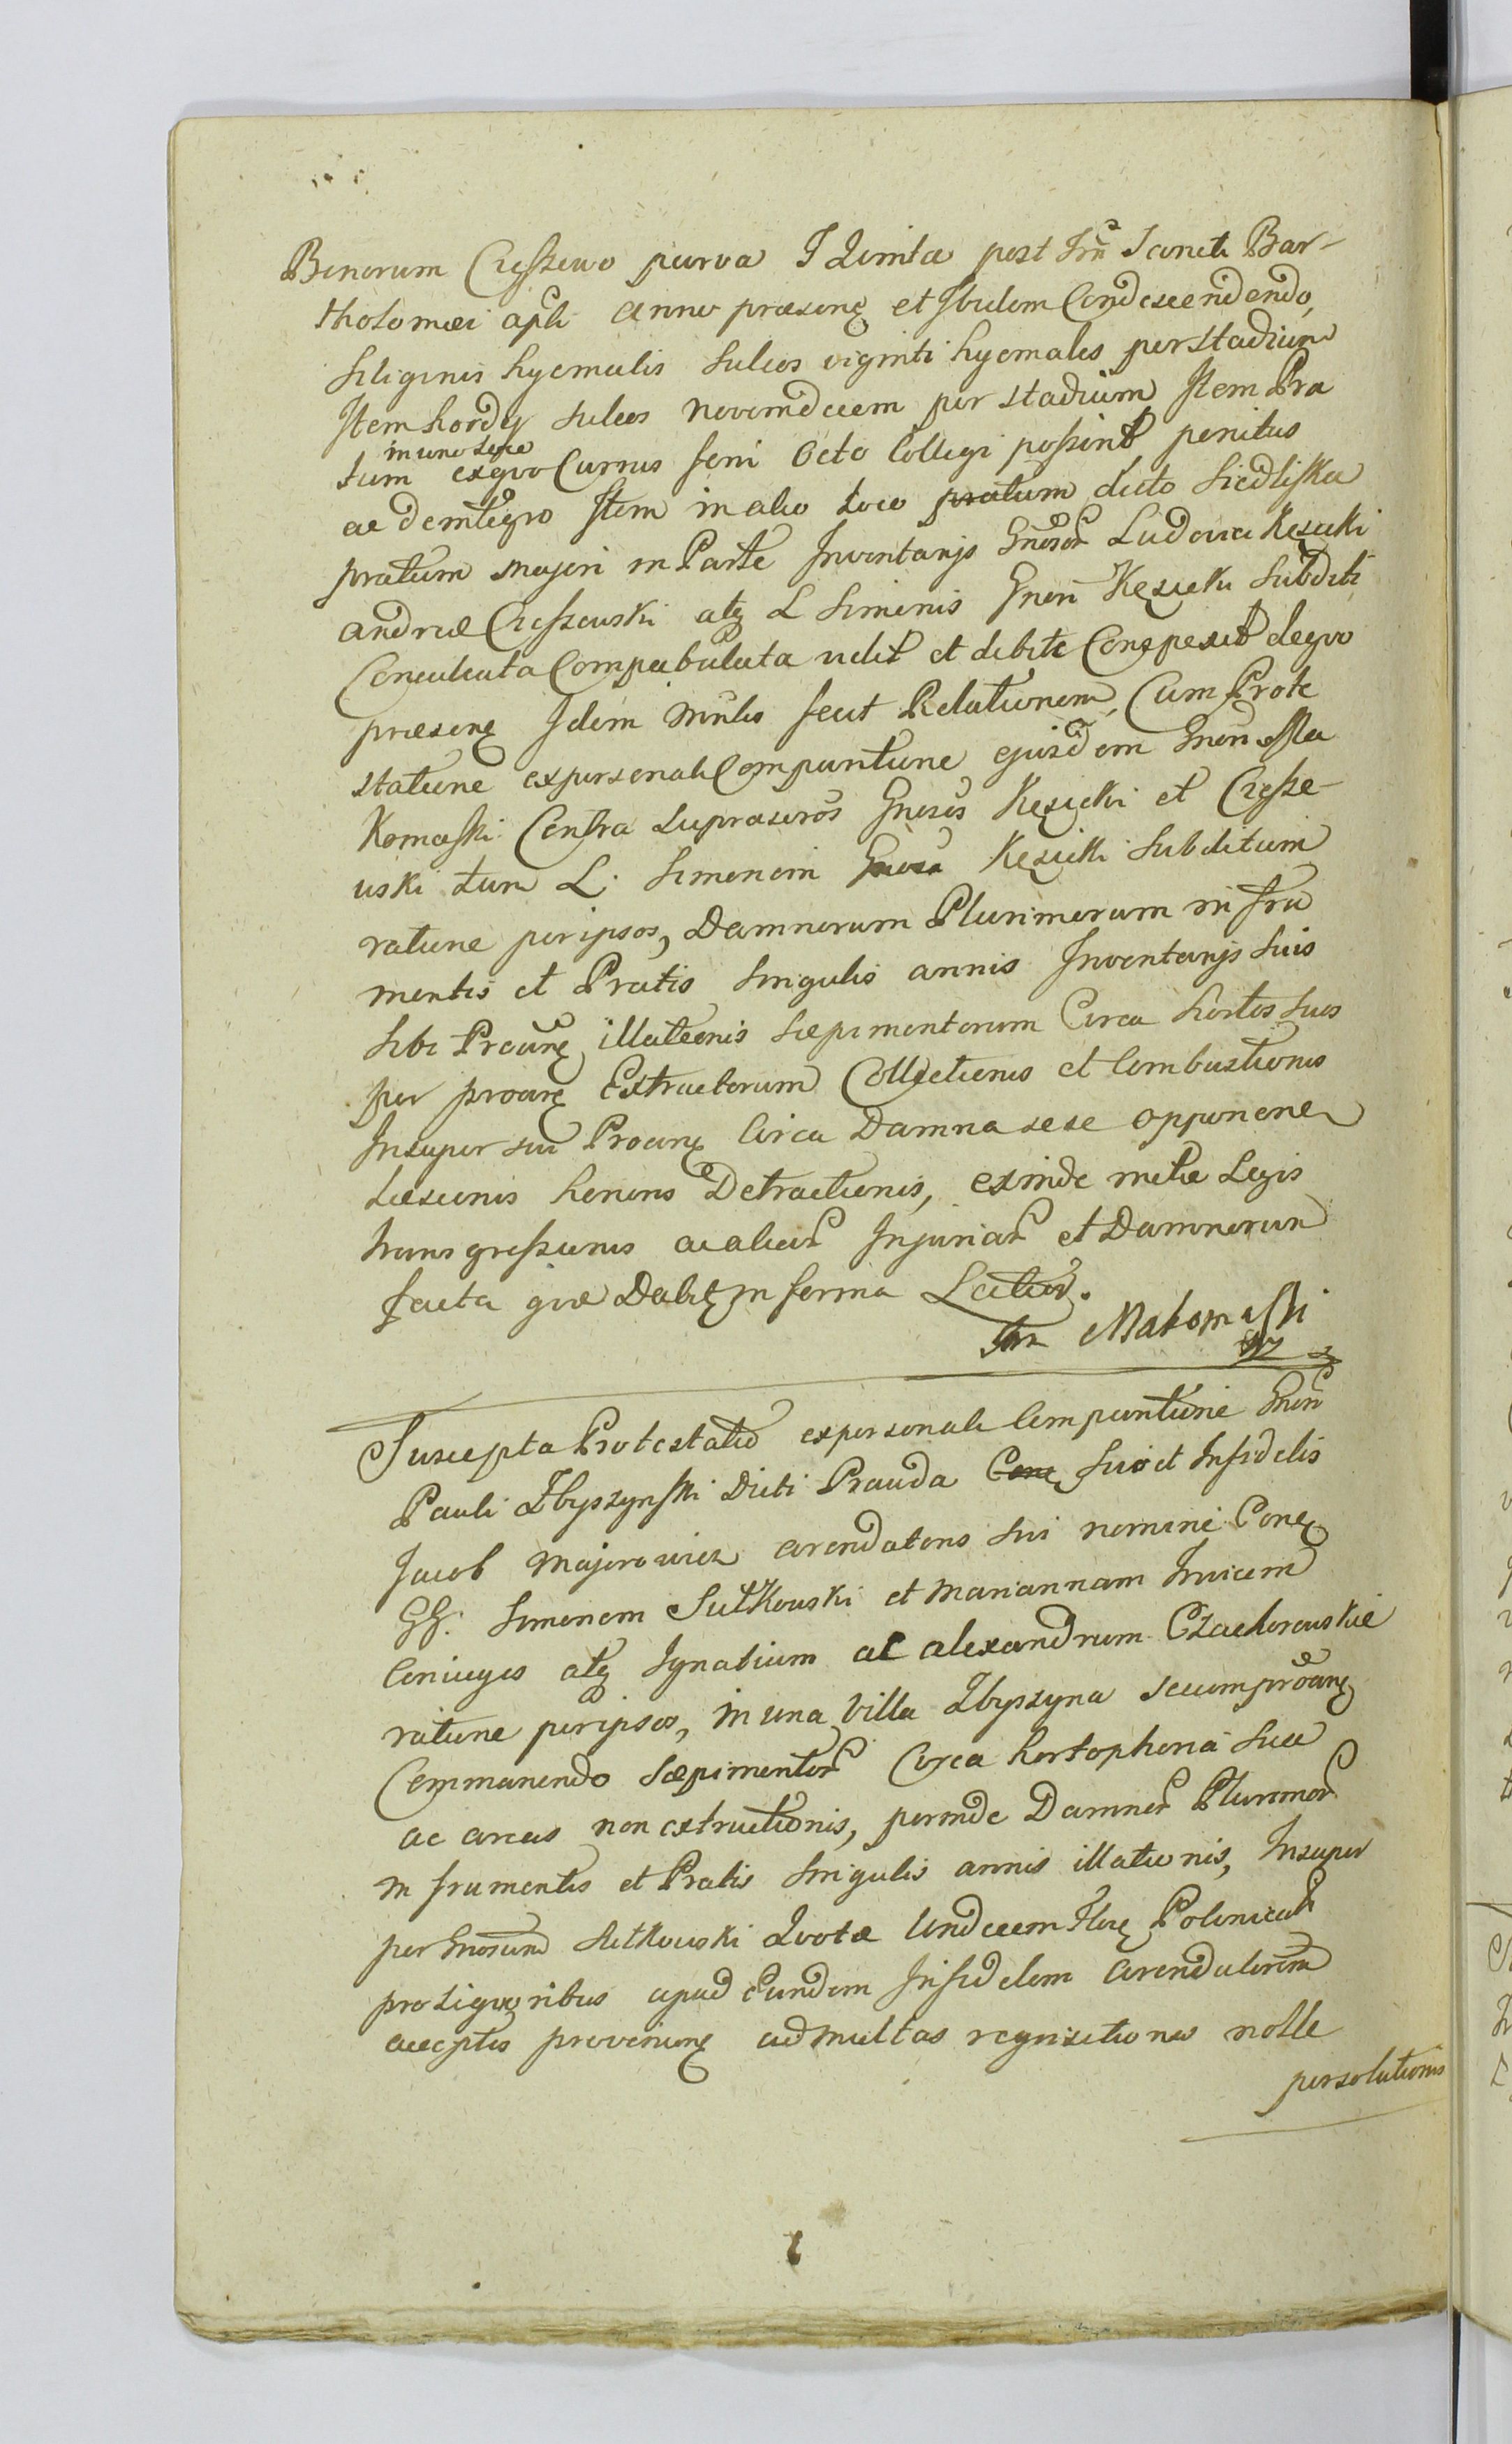 Bonorum Cieszewo parva F Quinta post Frũ Sancti Bar-
tholomæi apli anno præseng et Ibidem Condescendendo,
Siliginis hyemalis sulcos viginti hyemales per stadium
Item hordei sulcos novemdecem per stadium Item Pra
in uno loco
tum ex quo Currus feni Octo Colligi possint, penitus
ac de integro Item in alio loco pratum dicto Siedliska
pratum majori in Parte Inventarijs Gnosor Ludovici Kęsicki
andreæ Cieszewski atq L Simonis Gnon Kęsicki subditi
Conculcata Compabulata vidit et debite Conspexit de quo
præseng Idem Mnlis fecit Relationem, Cum Prote
statione ex personali Comparitione ejusdem Gnon Ma
Komaski Contra supraseros Gnosos Kęsicki et Ciesze-
wski tum L. Simonem Gnosi Kęsicki subditum
ratione per ipsos, Damnorum Plurimorum in fru
mentis et Pratis singulis annis Inventarijs suis
sibi Proang illationis sæpimentorum Circa hortos suos
per proang Extructorum Collectionis et Combustionis
Insuper sui Proang Circa Damna sese opponene
læsionis honoris Detractionis, exinde metæ Legis
transgressionis ac aliar Injuriar et Damnorum
facta quæ Dabit in forma Latior.
Jan Makomaski
mp
Suscepta Protestatio ex personali Comparitione Gnon
Pauli Zbyszynski Dicti Prawda Cong suo et Infidelis
Jacob Majorowicz arendatoris sui nomine Cong
GG. Simonem Sutkowski et Mariannam Invicem
Coniuges atq Ignatium ac alexandrum Czachorowskie
ratione per ipsos, in una Villa Zbyszyna secum proang
Commanendo sæpimentor Circa hortophoria sua
ac areas non extructionis, perinde Damnor Plurimor
in frumentis et Pratis singulis annis illationis, Insuper
per Gnosum Sutkowski Quotæ Undecem Flng Polonicali
pro liquoribus apud Eundem Infidelem arendatorem
acceptis proveniong ad multas requisitiones nolle
persolutionis